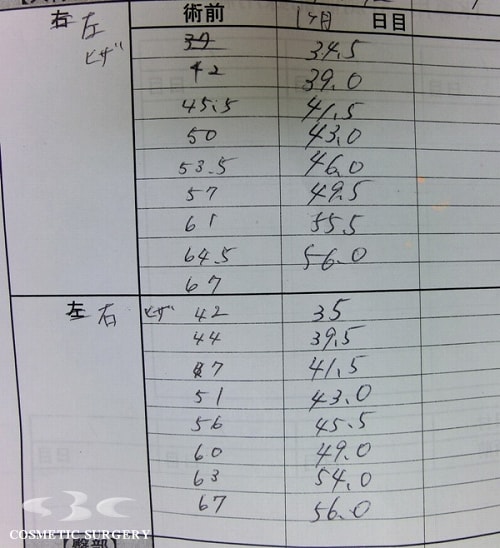 術前 1ヶ月 日目
右 左 39 34.5
ヒザ 42 39.0
45.5 41.5
50 43.0
53.5 46.0
57 49.5
61 55.5
64.5 56.0
67
左 右 ヒザ 42 35
44 39.5
47 41.5
51 43.0
56 45.5
60 49.0
63 54.0
67 56.0
SBC
COSMETIC SURGERY
【臀部】